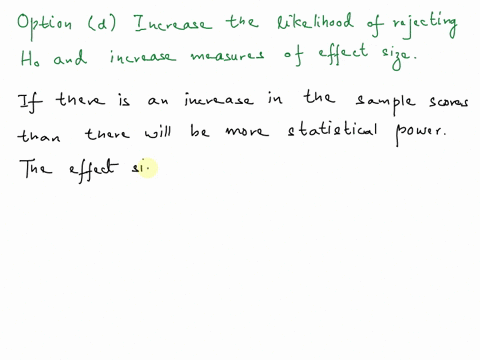 Option (d) Increase the likelihood of rejecting
H₀ and increase measures of effect size.
If there is an increase in the sample scores
than there will be more statistical power.
The effect si